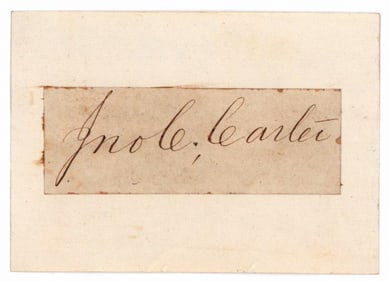 Jno C. Carter